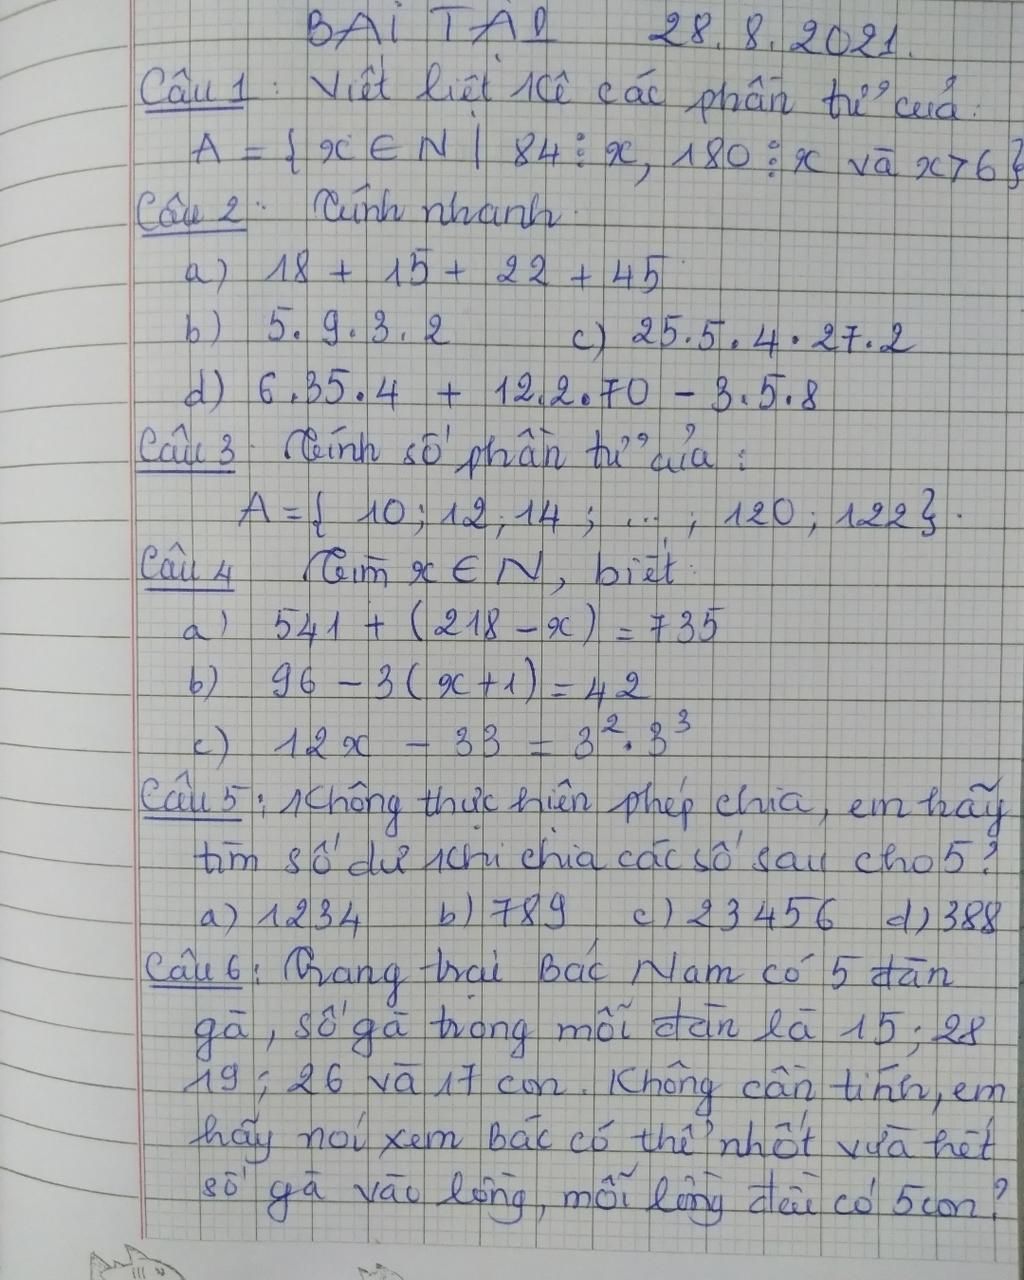 BÀI TẬP 28.8.2021.
Câu 1: Viết liệt kê các phần tử của:
A = { x ∈ N | 84 ⋮ x, 180 ⋮ x và x > 6 }
Câu 2: Tính nhanh:
a) 18 + 15 + 22 + 45
b) 5.9.3.2 c) 25.5.4.27.2
d) 6.35.4 + 12.2.70 - 3.5.8
Câu 3: Tính số phần tử của:
A = { 10; 12; 14; ...; 120; 122}.
Câu 4 Tìm x ∈ N, biết:
a) 541 + (218 - x) = 735
b) 96 - 3(x+1) = 42
c) 12x - 33 = 3².3³
Câu 5: Không thực hiện phép chia, em hãy
tìm số dư khi chia các số sau cho 5?
a) 1234 b) 789 c) 23456 d) 388
Câu 6: Trang trại Bác Nam có 5 đàn
gà, số gà trong mỗi đàn là 15; 28
19; 26 và 17 con. Không cần tính, em
hãy nói xem Bác có thể nhốt vừa hết
số gà vào lồng, mỗi lồng đều có 5 con?